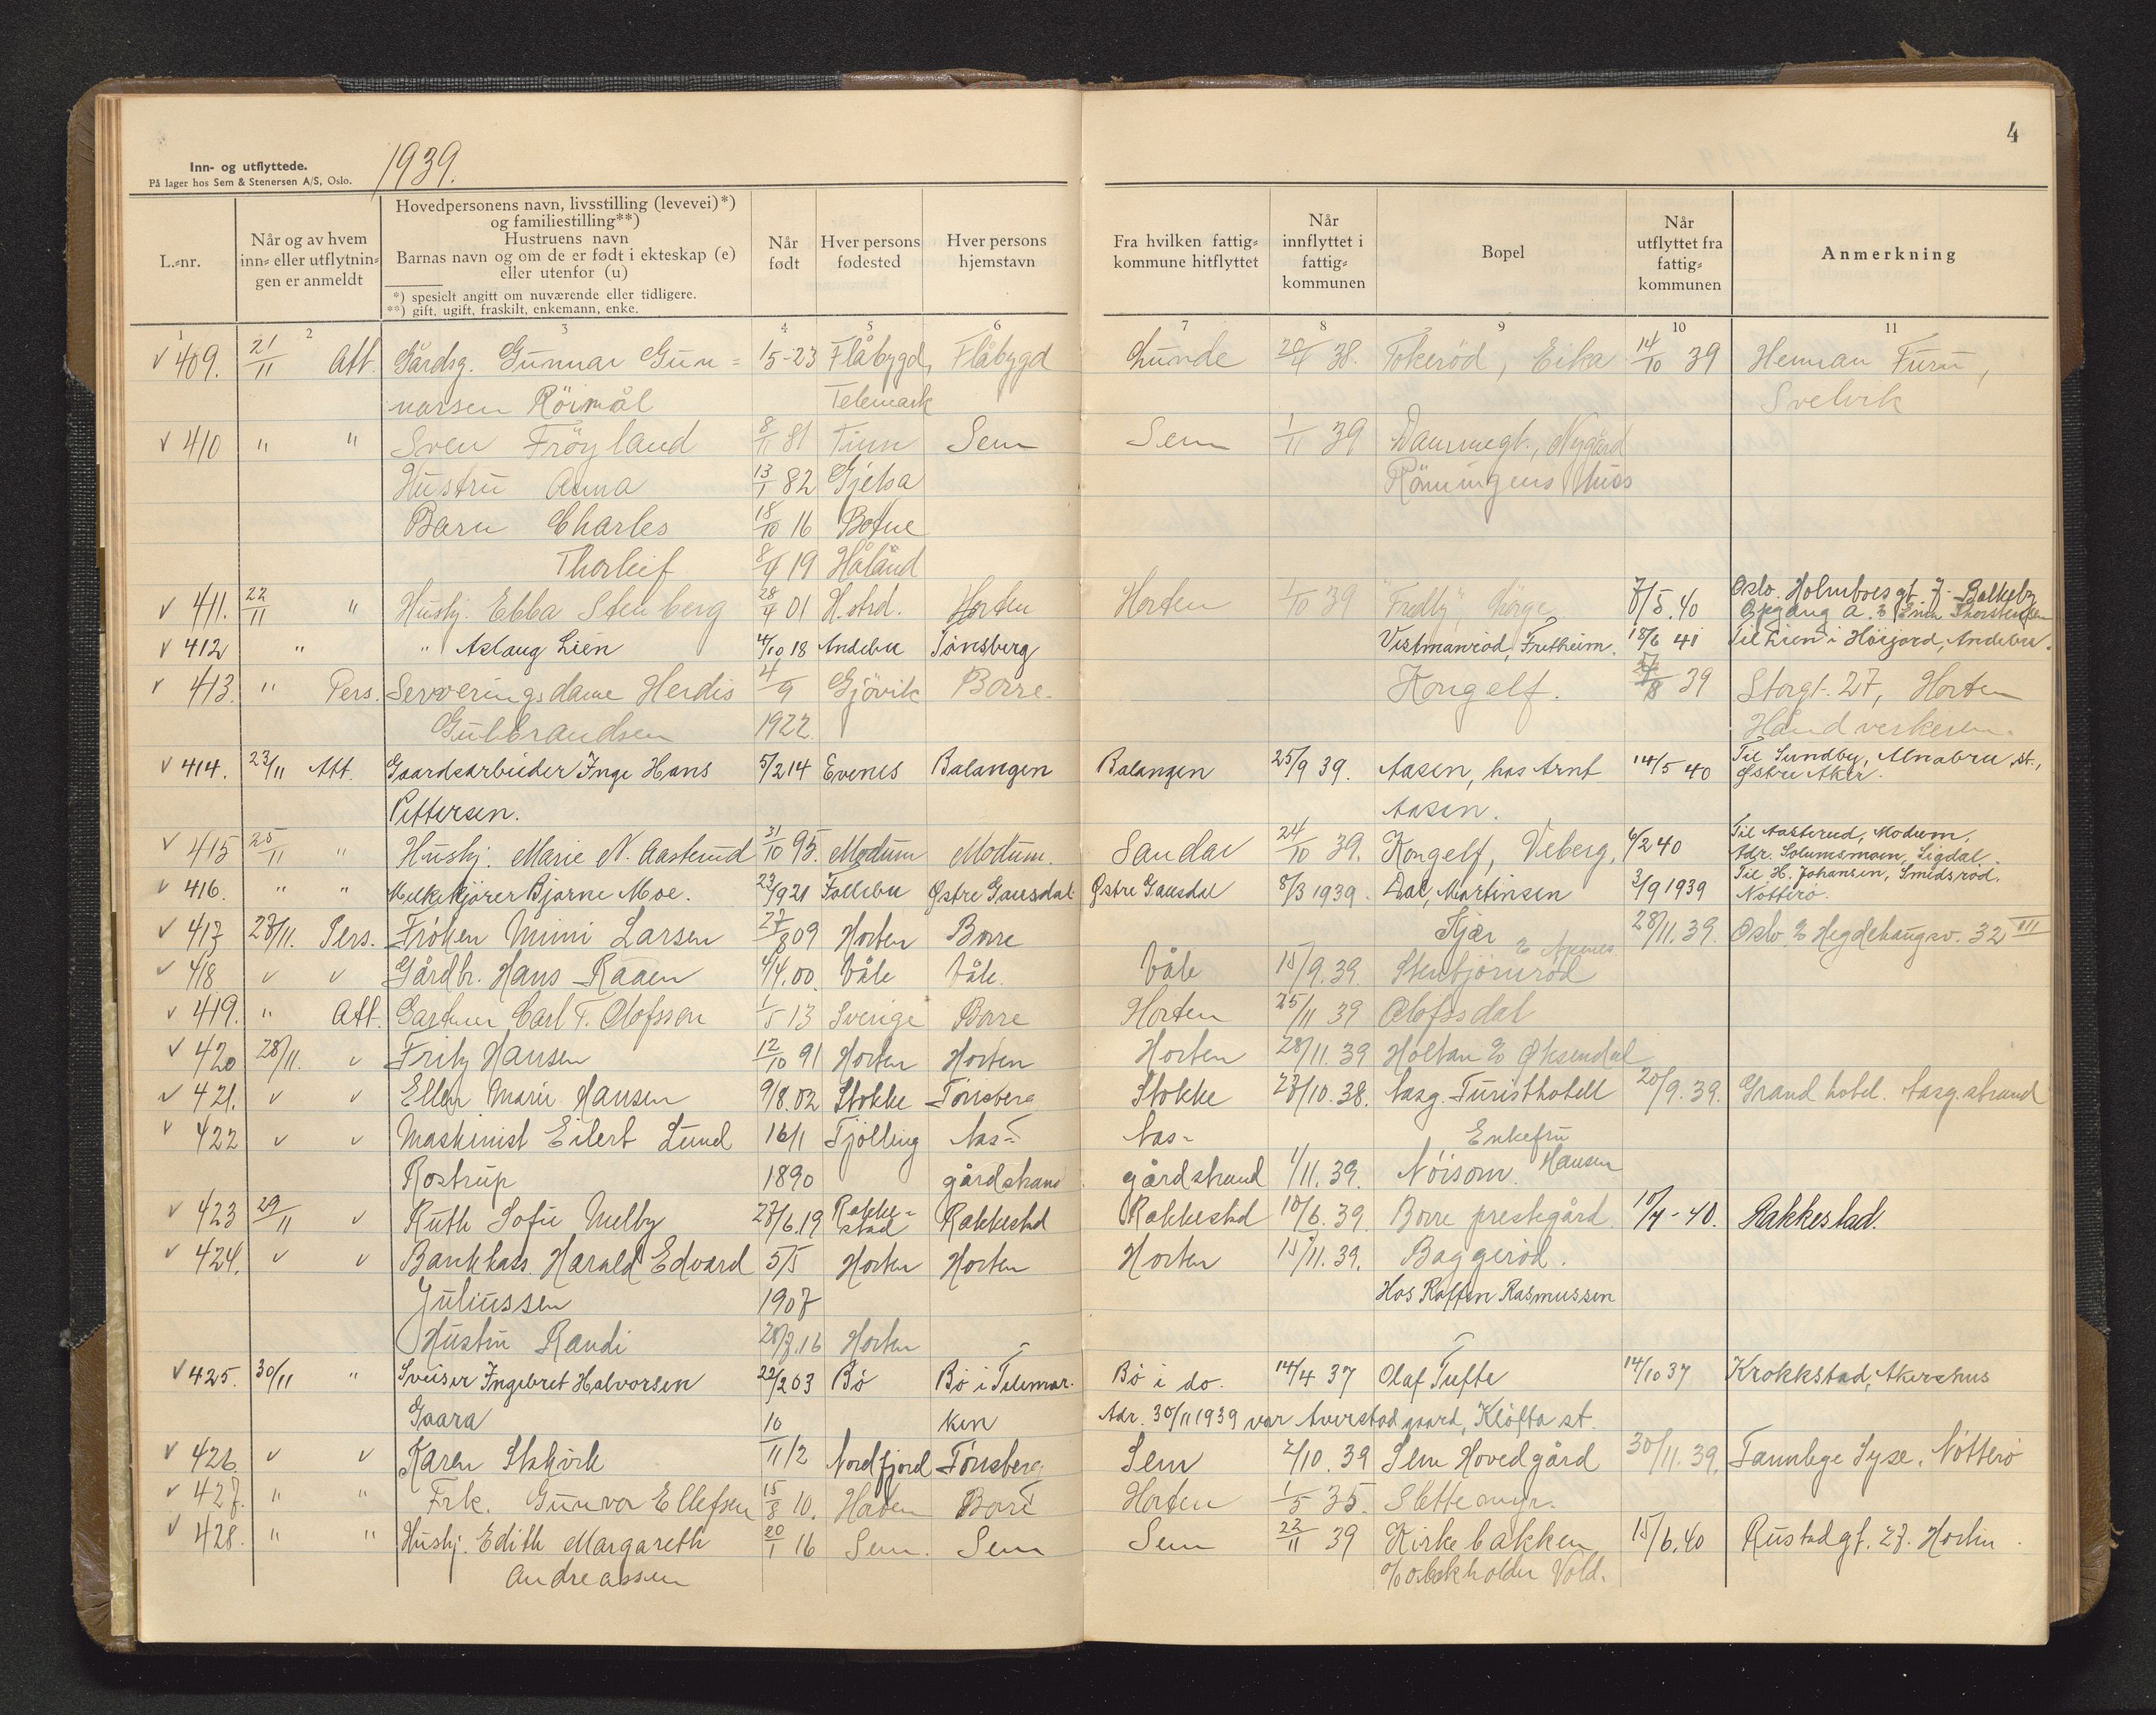 4
Inn- og utflyttede.
På lager hos Sem & Stenersen A/S, Oslo.
1939.
L.-nr.
Når og av hvem inn- eller utflytningen er anmeldt
Hovedpersonens navn, livsstilling (levevei)*)
og familiestilling**)
Hustruens navn
Barnas navn og om de er født i ekteskap (e)
eller utenfor (u)
*) spesielt angitt om nuværende eller tidligere.
**) gift, ugift, fraskilt, enkemann, enke.
Når født
Hver persons fødested
Hver persons hjemstavn
Fra hvilken fattig-kommune hitflyttet
Når innflyttet i fattig-kommunen
Bopel
Når utflyttet fra fattig-kommunen
Anmerkning
1 2 3 4 5 6 7 8 9 10 11
409. 21/11 Att. Gårdsg. Gunnar Gun= 1/5-23 Flåbygd, Flåbygd Lunde 38. Tokerød, Eika 14/10 39 Herman Furu,
narsen Röimål Telemark Svelvik
410 " " Sven Fröyland 81 Tinn Sem Sem 1/11 39 Dammegt., Nygård
Hustru Anna 13/1 82 Gjelsa Rönningens hus
Barn Charles 18/10 16 Botne
Thorleif 19 Håland
411. 22/11 " Hushj. Ebba Stenberg 01 H.strd. Horten Horten 1/10 39 "Fredly" 7/5.40 Oslo. Holmboesgt. 7. Balkeby
Opgang A.
412 " " Aslaug Lien 4/10 18 Andebu Tønsberg Vestmanrød, Fretheim. 18/6 41 Til Lien i Höijord, Andebu.
413. " Pers. Serveringsdame Herdis 4/9 Gjövik Borre. Kongelf. 39 Storgt. 27, Horten
Gulbrandsen 1922. Håndverkeren.
414. 23/11 Att. Gaardsarbeider Inge Hans 5/2 14 Evenes Balangen Balangen 25/9 39. Aasen, hos Arnt 14/5 40 Til Sundby, Alnabru st.,
Østre Aker.
Pettersen. Aasen.
415 25/11 " Hushj. Marie N. Aasterud 31/10 95. Modum Modum. Sandar 24/10 39. Kongelf, Viberg, 6/2 40 Til Aasterud, Modum,
Adr. Solumsmoen, Sigdal.
416. " " Melkekjører Bjarne Moe. 23/9 21 Follebu Østre Gausdal Østre Gausdal 8/3 1939. Dal, Martinsen 3/9 1939 Til H. Johansen, Smidsrød.
Nøtterø.
417 27/11. Pers. Fröken Mimi Larsen 27/8 09 Horten Borre Kjær 28/11. 39. Oslo Hegdehaugsv. 32 III
418 Gårdbr. Hans Raaen 4/4. 00. Våle Våle. Våle 15/9. 39. Stenbjörnröd
419. " Att. Gartner Carl T. Olofsson 13 Sverige Borre Horten 25/11 39 Olofsdal
420 28/11. Fritz Hansen 12/10 91 Horten Horten Horten 28/11. 39 Holtan Øksendal
421. Ellen Marie Hansen 9/8. 02 Stokke Tönsberg Stokke 27/10. 38. Aasg. Turisthotell 20/9. 39. Grand hotel. Aasg.strand
422 Maskinist Eilert Lund 16/1 Tjölling Aas- Aas- Enkefru
Rostrup 1890 gårdstrand gårdstrand 1/11. 39. Nöisom. Hansen
423 29/11 Ruth Sofie Melby 27/6. 19 Rakke-stad Rakkestad Rakkestad 10/6. 39. Borre prestegård. 40. Rakkestad.
424. Bankkass. Harald Edvard 5/5 Horten Horten Horten 15/11. 39. Baggeröd.
Juliussen 1907 Hos Roffen Rasmussen
Hustru Randi 28/7. 16 Horten
425. 30/11 " Sveiser Ingebret Halvorsen 22/2 03 Bø Bø i Telemar- Bø i do. 14/4 37 Olaf Tufte 14/10 37 Krokkstad, Akershus
Gaara ken Adr. 30/11 1939 var Averstad gaard, Kløfta st.
426. Karen Stokvik 10/11 12 Nordfjord Tönsberg Sem 2/10. 39 Sem Hovedgård 30/11. 39. Tannlege Syse. Nötterö
427. " " Frk. Gunvor Ellefsen 15/8 10. Horten Borre Horten 1/5 35. Slettemyr.
428. " " Hushj. Edith Margareth 20/1 16 Sem. Sem Sem 22/11 39 Kirkebakken 15/6. 40 Rustadgt. 27. Horten.
Andreassen Vold.